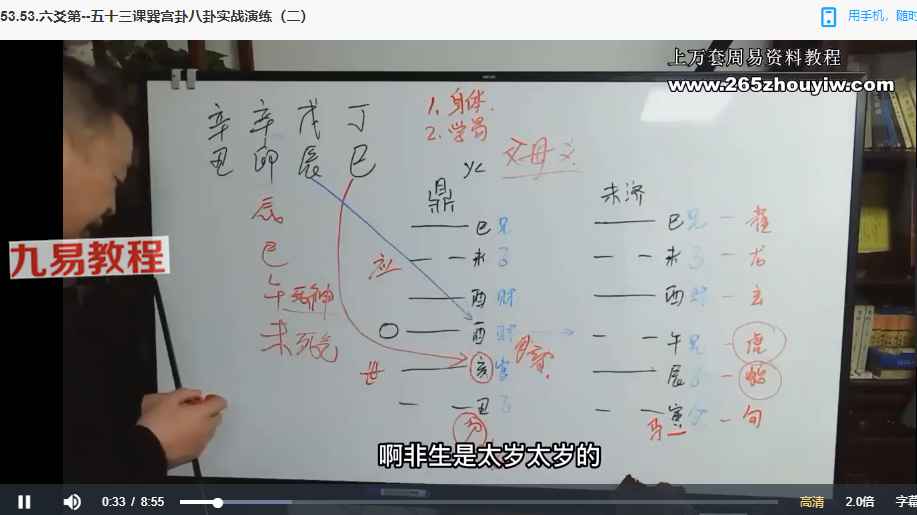 53.53.六爻第--五十三课巽宫卦八卦实战演练（二）
用手机，随时
上万套周易资料教程
www.265zhouyiw.com
辛 辛 戊 丁
丑 卯 辰 巳
辰
巳
午 死神
未 死气
1. 身体.
2. 学习
父母爻
鼎
未济
巳 兄
未 子
应
酉 财
酉 财
世
亥 官
丑 子
巳 兄 - 雀
未 子 - 龙
酉 财 - 玄
午 兄 - 虎
辰 子
寅 父 - 勾
九易教程
啊非生是太岁太岁的
0:33 / 8:55
高清
2.0倍
字幕